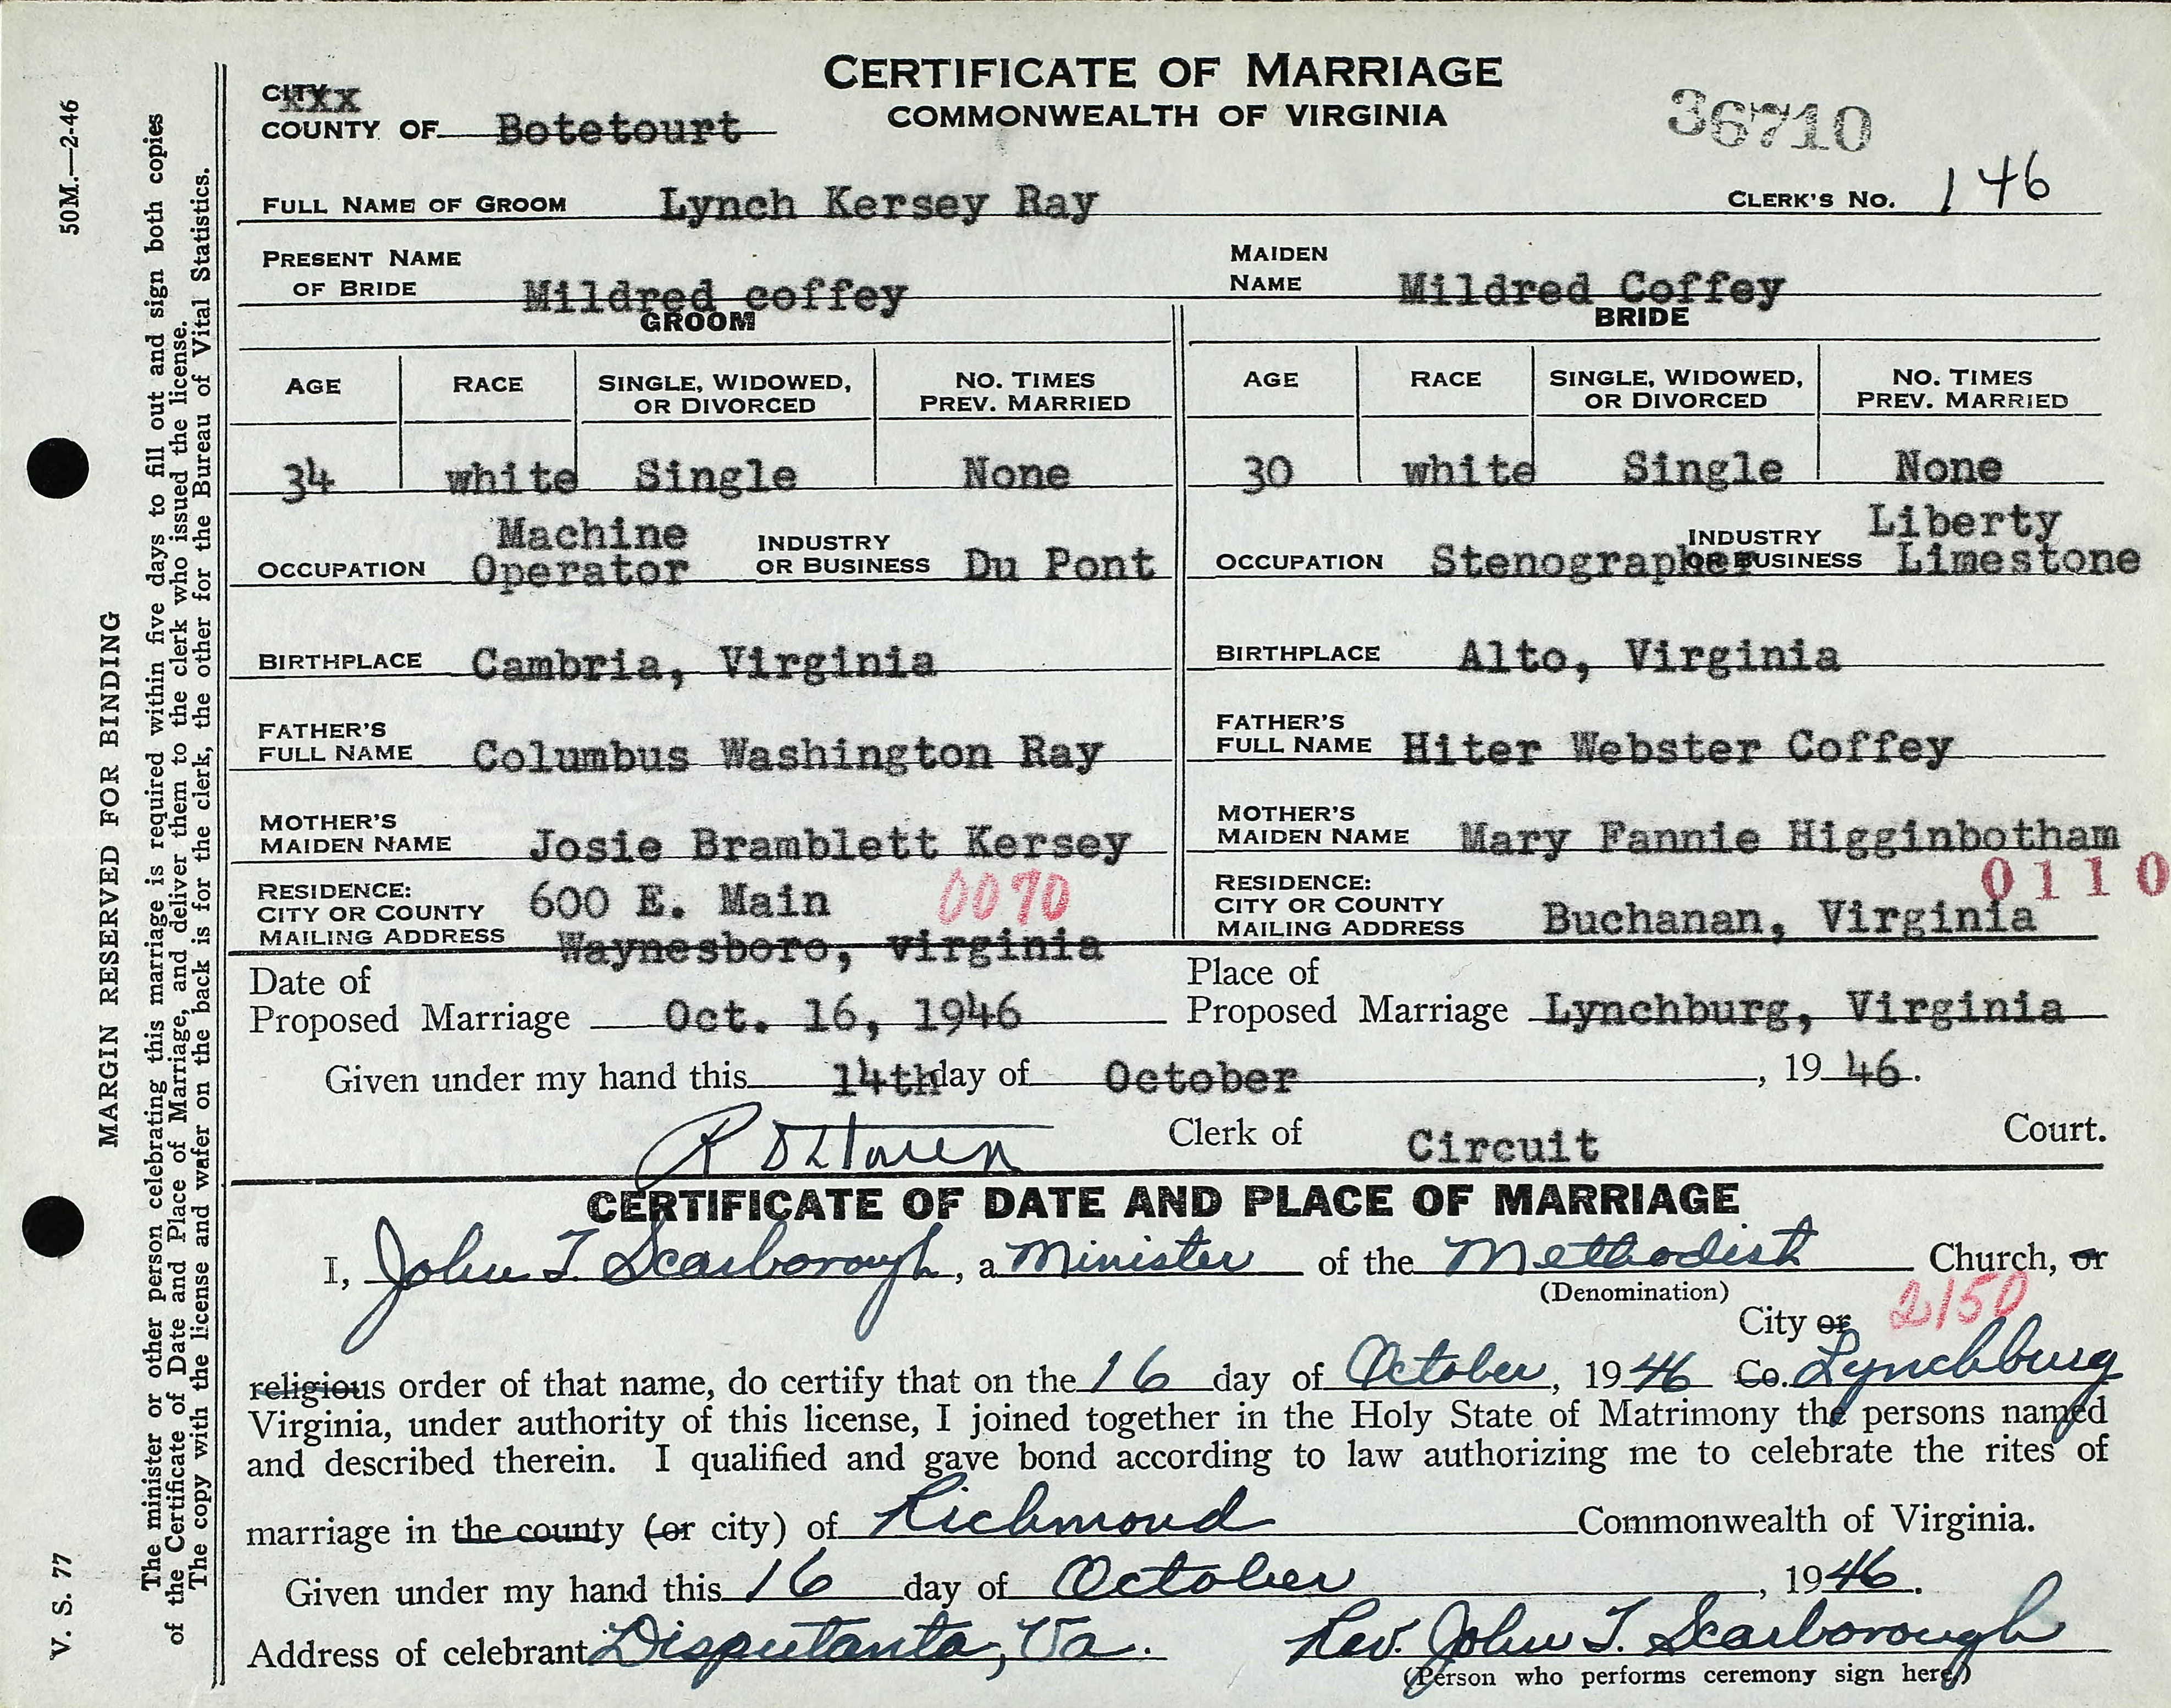 CERTIFICATE OF MARRIAGE
COMMONWEALTH OF VIRGINIA
36710
CITY xxx
COUNTY OF Botetourt
CLERK'S NO. 146
FULL NAME OF GROOM Lynch Kersey Ray
PRESENT NAME OF BRIDE Mildred coffey
MAIDEN NAME Mildred Coffey
GROOM
AGE RACE SINGLE, WIDOWED, OR DIVORCED NO. TIMES PREV. MARRIED
34 white Single None
OCCUPATION Machine Operator INDUSTRY OR BUSINESS Du Pont
BIRTHPLACE Cambria, Virginia
FATHER'S FULL NAME Columbus Washington Ray
MOTHER'S MAIDEN NAME Josie Bramblett Kersey
RESIDENCE: CITY OR COUNTY MAILING ADDRESS 600 E. Main Waynesboro, virginia
0070
BRIDE
AGE RACE SINGLE, WIDOWED, OR DIVORCED NO. TIMES PREV. MARRIED
30 white Single None
OCCUPATION Stenographer INDUSTRY OR BUSINESS Liberty Limestone
BIRTHPLACE Alto, Virginia
FATHER'S FULL NAME Hiter Webster Coffey
MOTHER'S MAIDEN NAME Mary Fannie Higginbotham
0110
RESIDENCE: CITY OR COUNTY MAILING ADDRESS Buchanan, Virginia
Date of Proposed Marriage Oct. 16, 1946
Place of Proposed Marriage Lynchburg, Virginia
Given under my hand this 14th day of October, 1946.
Clerk of Circuit Court.
CERTIFICATE OF DATE AND PLACE OF MARRIAGE
I, John T. Scarborough, a Minister of the Methodist Church, or
(Denomination)
City or 2150
religious order of that name, do certify that on the 16 day of October, 1946 Co. Lynchburg
Virginia, under authority of this license, I joined together in the Holy State of Matrimony the persons named
and described therein. I qualified and gave bond according to law authorizing me to celebrate the rites of
marriage in the county (or city) of Richmond Commonwealth of Virginia.
Given under my hand this 16 day of October, 1946.
Address of celebrant Disputanta, Va. Rev. John T. Scarborough
(Person who performs ceremony sign here.)
V. S. 77 50M.—2-46
MARGIN RESERVED FOR BINDING
The minister or other person celebrating this marriage is required within five days to fill out and sign both copies
of the Certificate of Date and Place of Marriage, and deliver them to the clerk who issued the license.
The copy with the license and wafer on the back is for the clerk, the other for the Bureau of Vital Statistics.